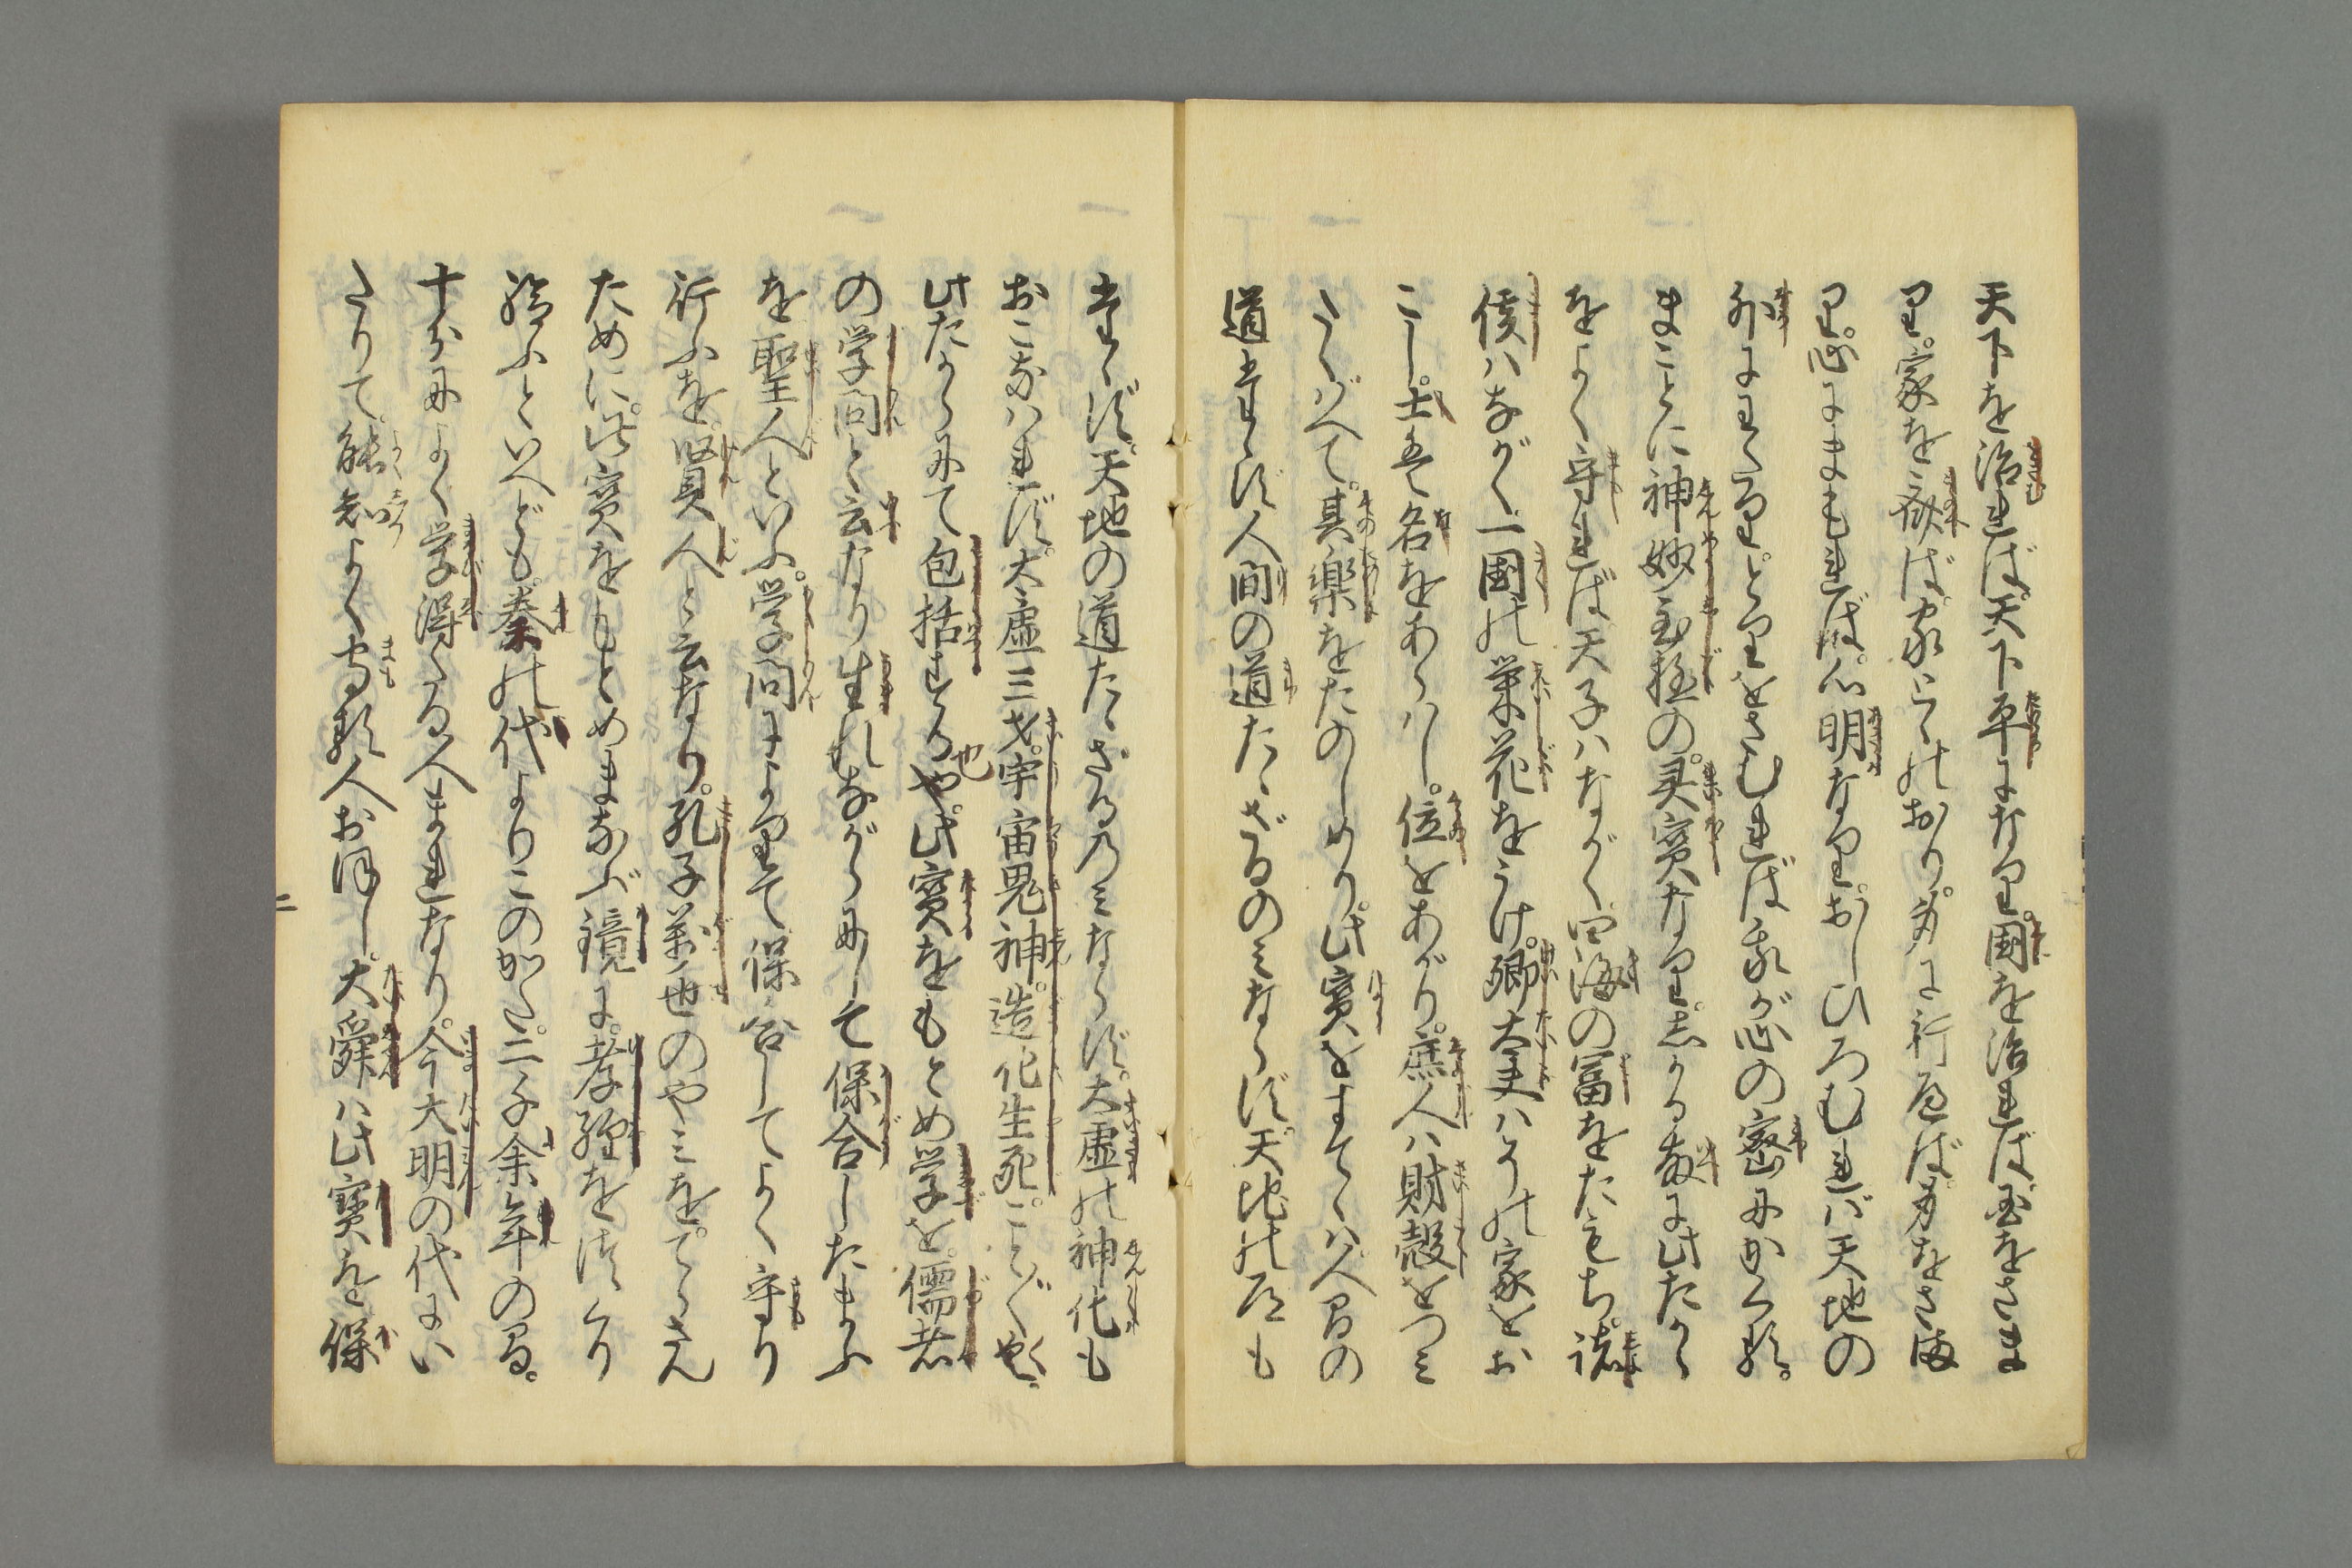 天下を治れば。天下平になり。国を治れば。国おさま
り。家を斎ば。家とゝのおり。身に行へば。身おさま
り。心にまもれば。心明なり。おしひろむれば天地の
外にわたり。とりをさむれば。我が心の密にかくる。
まことに神妙至極の。灵寳なり。しかる故に此たから
をよく守れば天子ハながく四海の冨をたもち。諸
侯ハながく一國の栄花をうけ。卿大夫ハその家をお
こし。士は名をあらハし。位をあがり。庶人ハ財穀をつミ
たくはへて。其楽をたのしめり。此寳をすてゝハ人間の
道たゝず人間の道たゝざるのミならず。天地の道も
たゝず。天地の道たゝざるのミならず。太虚の神化も
おこなハれず。太虚三才。宇宙鬼神。造化生死。こと〴〵く
此たからにて包括する也。此寳をもとめ学を。儒者
の学問と云なり生れながらにして保合したまふ
を聖人といふ。学問によりて保合してよく守り
行ふを。賢人と云なり。孔子萬世のやミを。てらさん
ために。此寳をもとめまなぶ鏡に。孝経をつくり
給ふといへども。秦の代よりこのかた。二千余年の間。
十分によく学得たる人まれなり。今大明の代にい
たりて。能知よく守る人おほし。大舜ハ此寳を保
二